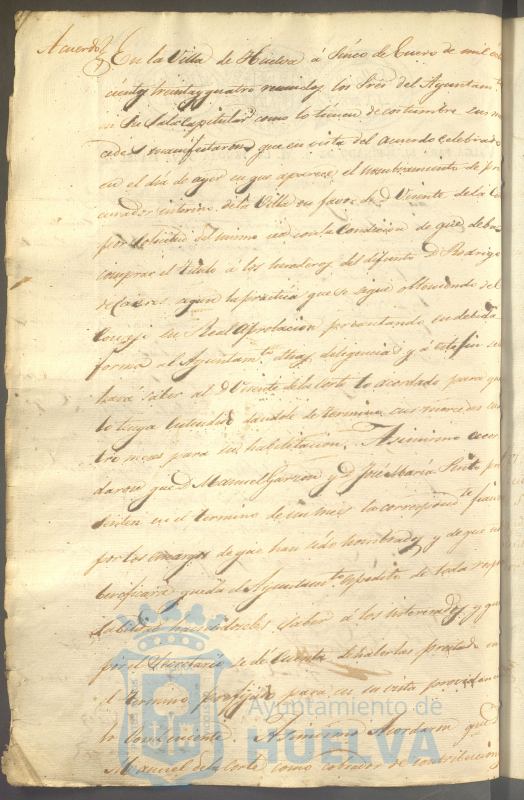 Acuerdo
En la Villa de Huelva á Sinco de Enero de mil ocho
cientos treinta y quatro reunidos los Sres del Ayuntamto
en Su Sala Capitular como lo tienen de costumbre sus mr
cedes manifestaron que en vista del acuerdo celebrado
en el dia de ayer en que aparece el nombramiento de pro
curador interino de la Villa en favor de D Vicente de la Co
por solicitud del mismo con la Condicion de que deba
comprar el titulo á los herederos del difunto D Rodrigo
segun la practica que se sigue obteniendo del
Consejo su Real Aprobacion presentando en debida
forma al Ayuntamto diligencias y á este fin se
hará saber al D Vicente de la Corte lo acordado para que
lo tenga entendido dandole de termino sus mercedes
tres meses para su habilitacion. Asimismo acor
daron que D Manuel Garzon y D José Maria Pinto
en el termino de un mes la correspondte fianza
por los encargos de que han sido nombrados y de que no
berificara queda el Ayuntamto de toda resp
sabilidad haciendoseles Saber á los interesados y que
por el Secretario se dé Cuenta de haberlas prestado en
el termino prefijado para en su vista
lo Conbeniente. Asimismo Acordaron que D
Manuel de la Corte como cobrador de contribucion
Ayuntamiento de
HUELVA